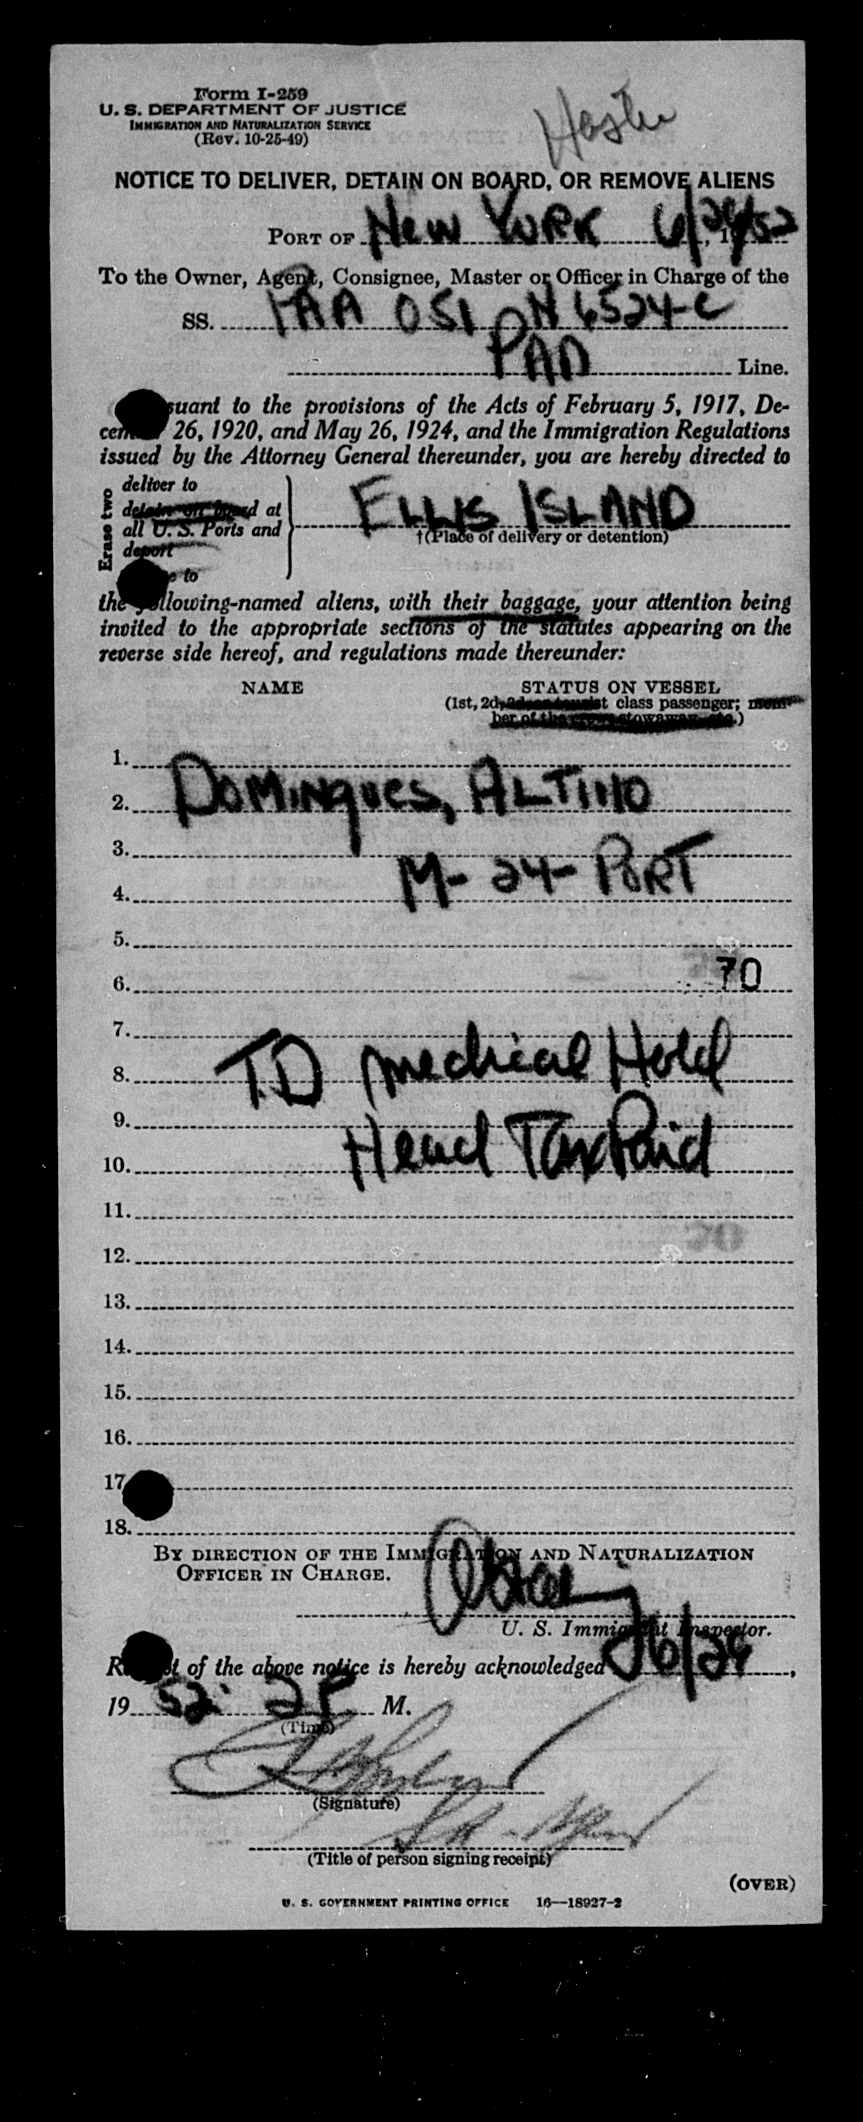 Form I-259
U. S. DEPARTMENT OF JUSTICE
IMMIGRATION AND NATURALIZATION SERVICE
(Rev. 10-25-49)
NOTICE TO DELIVER, DETAIN ON BOARD, OR REMOVE ALIENS
PORT OF NEW YORK 6/29/52
To the Owner, Agent, Consignee, Master or Officer in Charge of the
SS. PAA 051 N6524-C
Line.
suant to the provisions of the Acts of February 5, 1917, De-
cem 26, 1920, and May 26, 1924, and the Immigration Regulations
issued by the Attorney General thereunder, you are hereby directed to
Erase two
deliver to
detain on board at
all U. S. Ports and
deport
to
ELLIS ISLAND
†(Place of delivery or detention)
the following-named aliens, with their baggage, your attention being
invited to the appropriate sections of the statutes appearing on the
reverse side hereof, and regulations made thereunder:
NAME STATUS ON VESSEL
(1st, 2d, class passenger; mem-
ber of the crew, stowaway, etc.)
1.
2. DOMINQUES, ALTINO
3.
4. M- 24- PORT
5.
6. 70
7.
8. T.D medical Hold
9.
10. Head Tax Paid
11.
12.
13.
14.
15.
16.
17
18.
BY DIRECTION OF THE IMMIGRATION AND NATURALIZATION
OFFICER IN CHARGE.
U. S. Immigrant Inspector.
Receipt of the above notice is hereby acknowledged 6/29,
19 52 2 P M.
(Time)
(Signature)
(Title of person signing receipt)
(OVER)
U. S. GOVERNMENT PRINTING OFFICE 16—18927-2